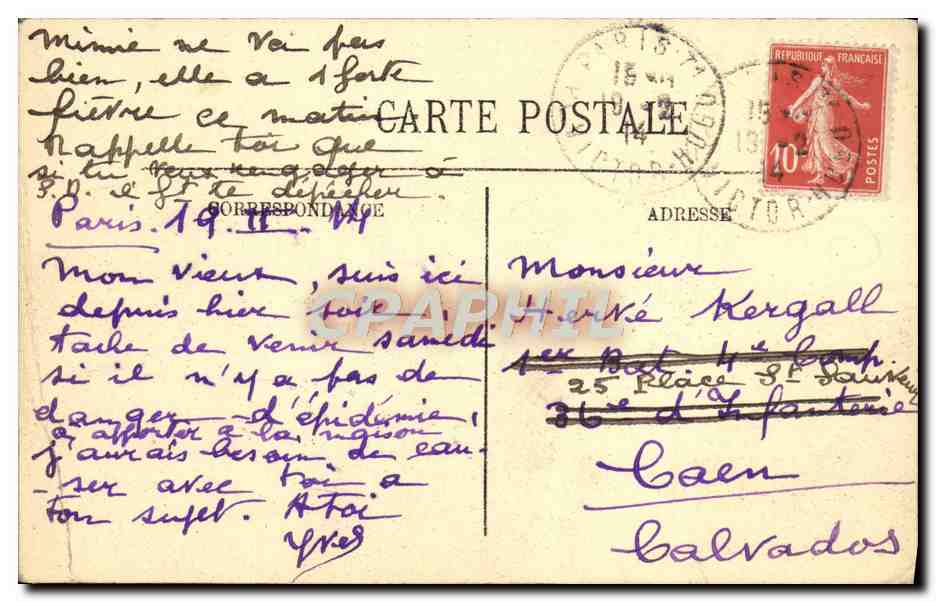 Mimie ne va pas
bien, elle a 1 forte
fièvre ce matin.
Rappelle toi que
si tu veux rengager à
S. D. il St te dépêcher.
CARTE POSTALE
CORRESPONDANCE
Paris. 19. II. 14
Mon vieux, suis ici
depuis hier soir,
tache de venir samedi
si il n'y a pas de
danger d'épidémie,
à apporter à la maison
j'aurais besoin de cau-
-ser avec toi a
ton sujet. A toi
Yves
ADRESSE
Monsieur
Hervé Kergall
1er Bat 4e Comp.
25 Place St Sauveur
36e d'Infanterie
Caen
Calvados
REPUBLIQUE FRANÇAISE
10c
POSTES
PARIS
15
19 -2
14
VICTOR-HUGO
15
19 -2
14
VICTOR-HUGO
CPAPHIL